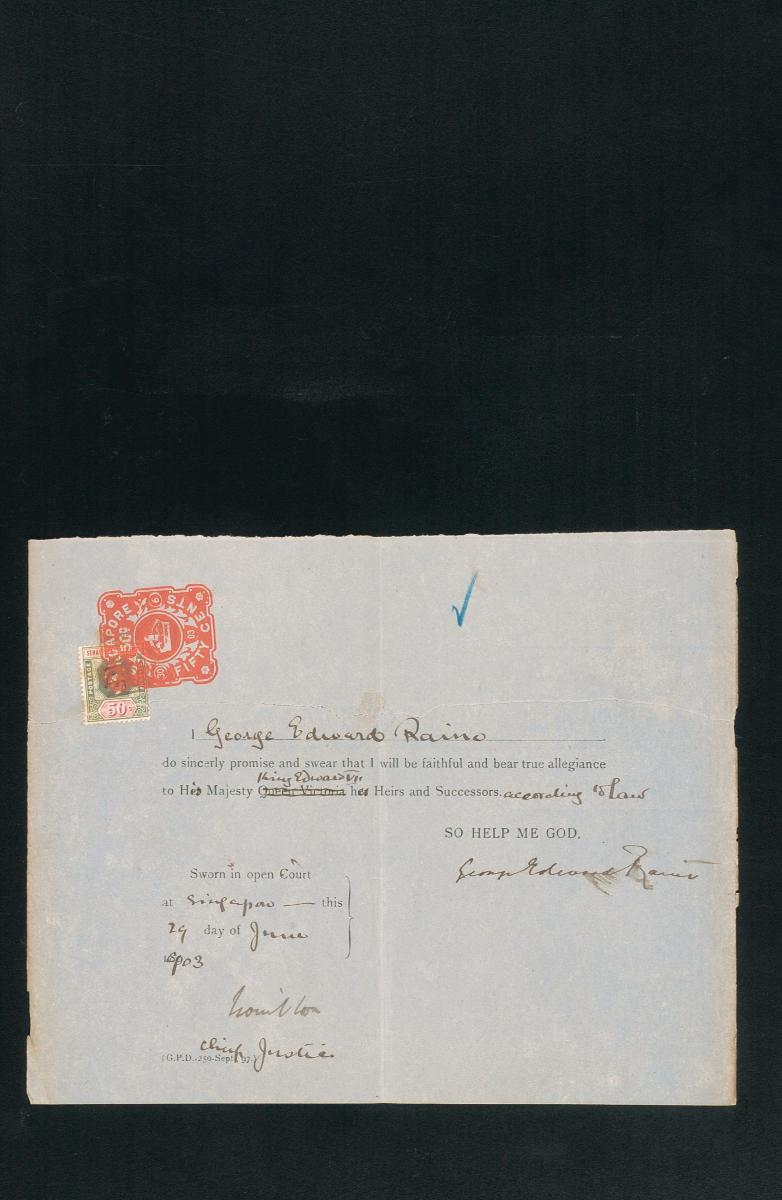 SINGAPORE
FIFTY CENTS
POSTAGE
50
I George Edward Raine
do sincerly promise and swear that I will be faithful and bear true allegiance
King Edward VII
to His Majesty Queen Victoria her Heirs and Successors. according to Law
SO HELP ME GOD.
George Edward Raine
Sworn in open Court
at Singapore this
29 day of June
1903
Chief Justice
(G.P.D.-250-Sept. 97.)